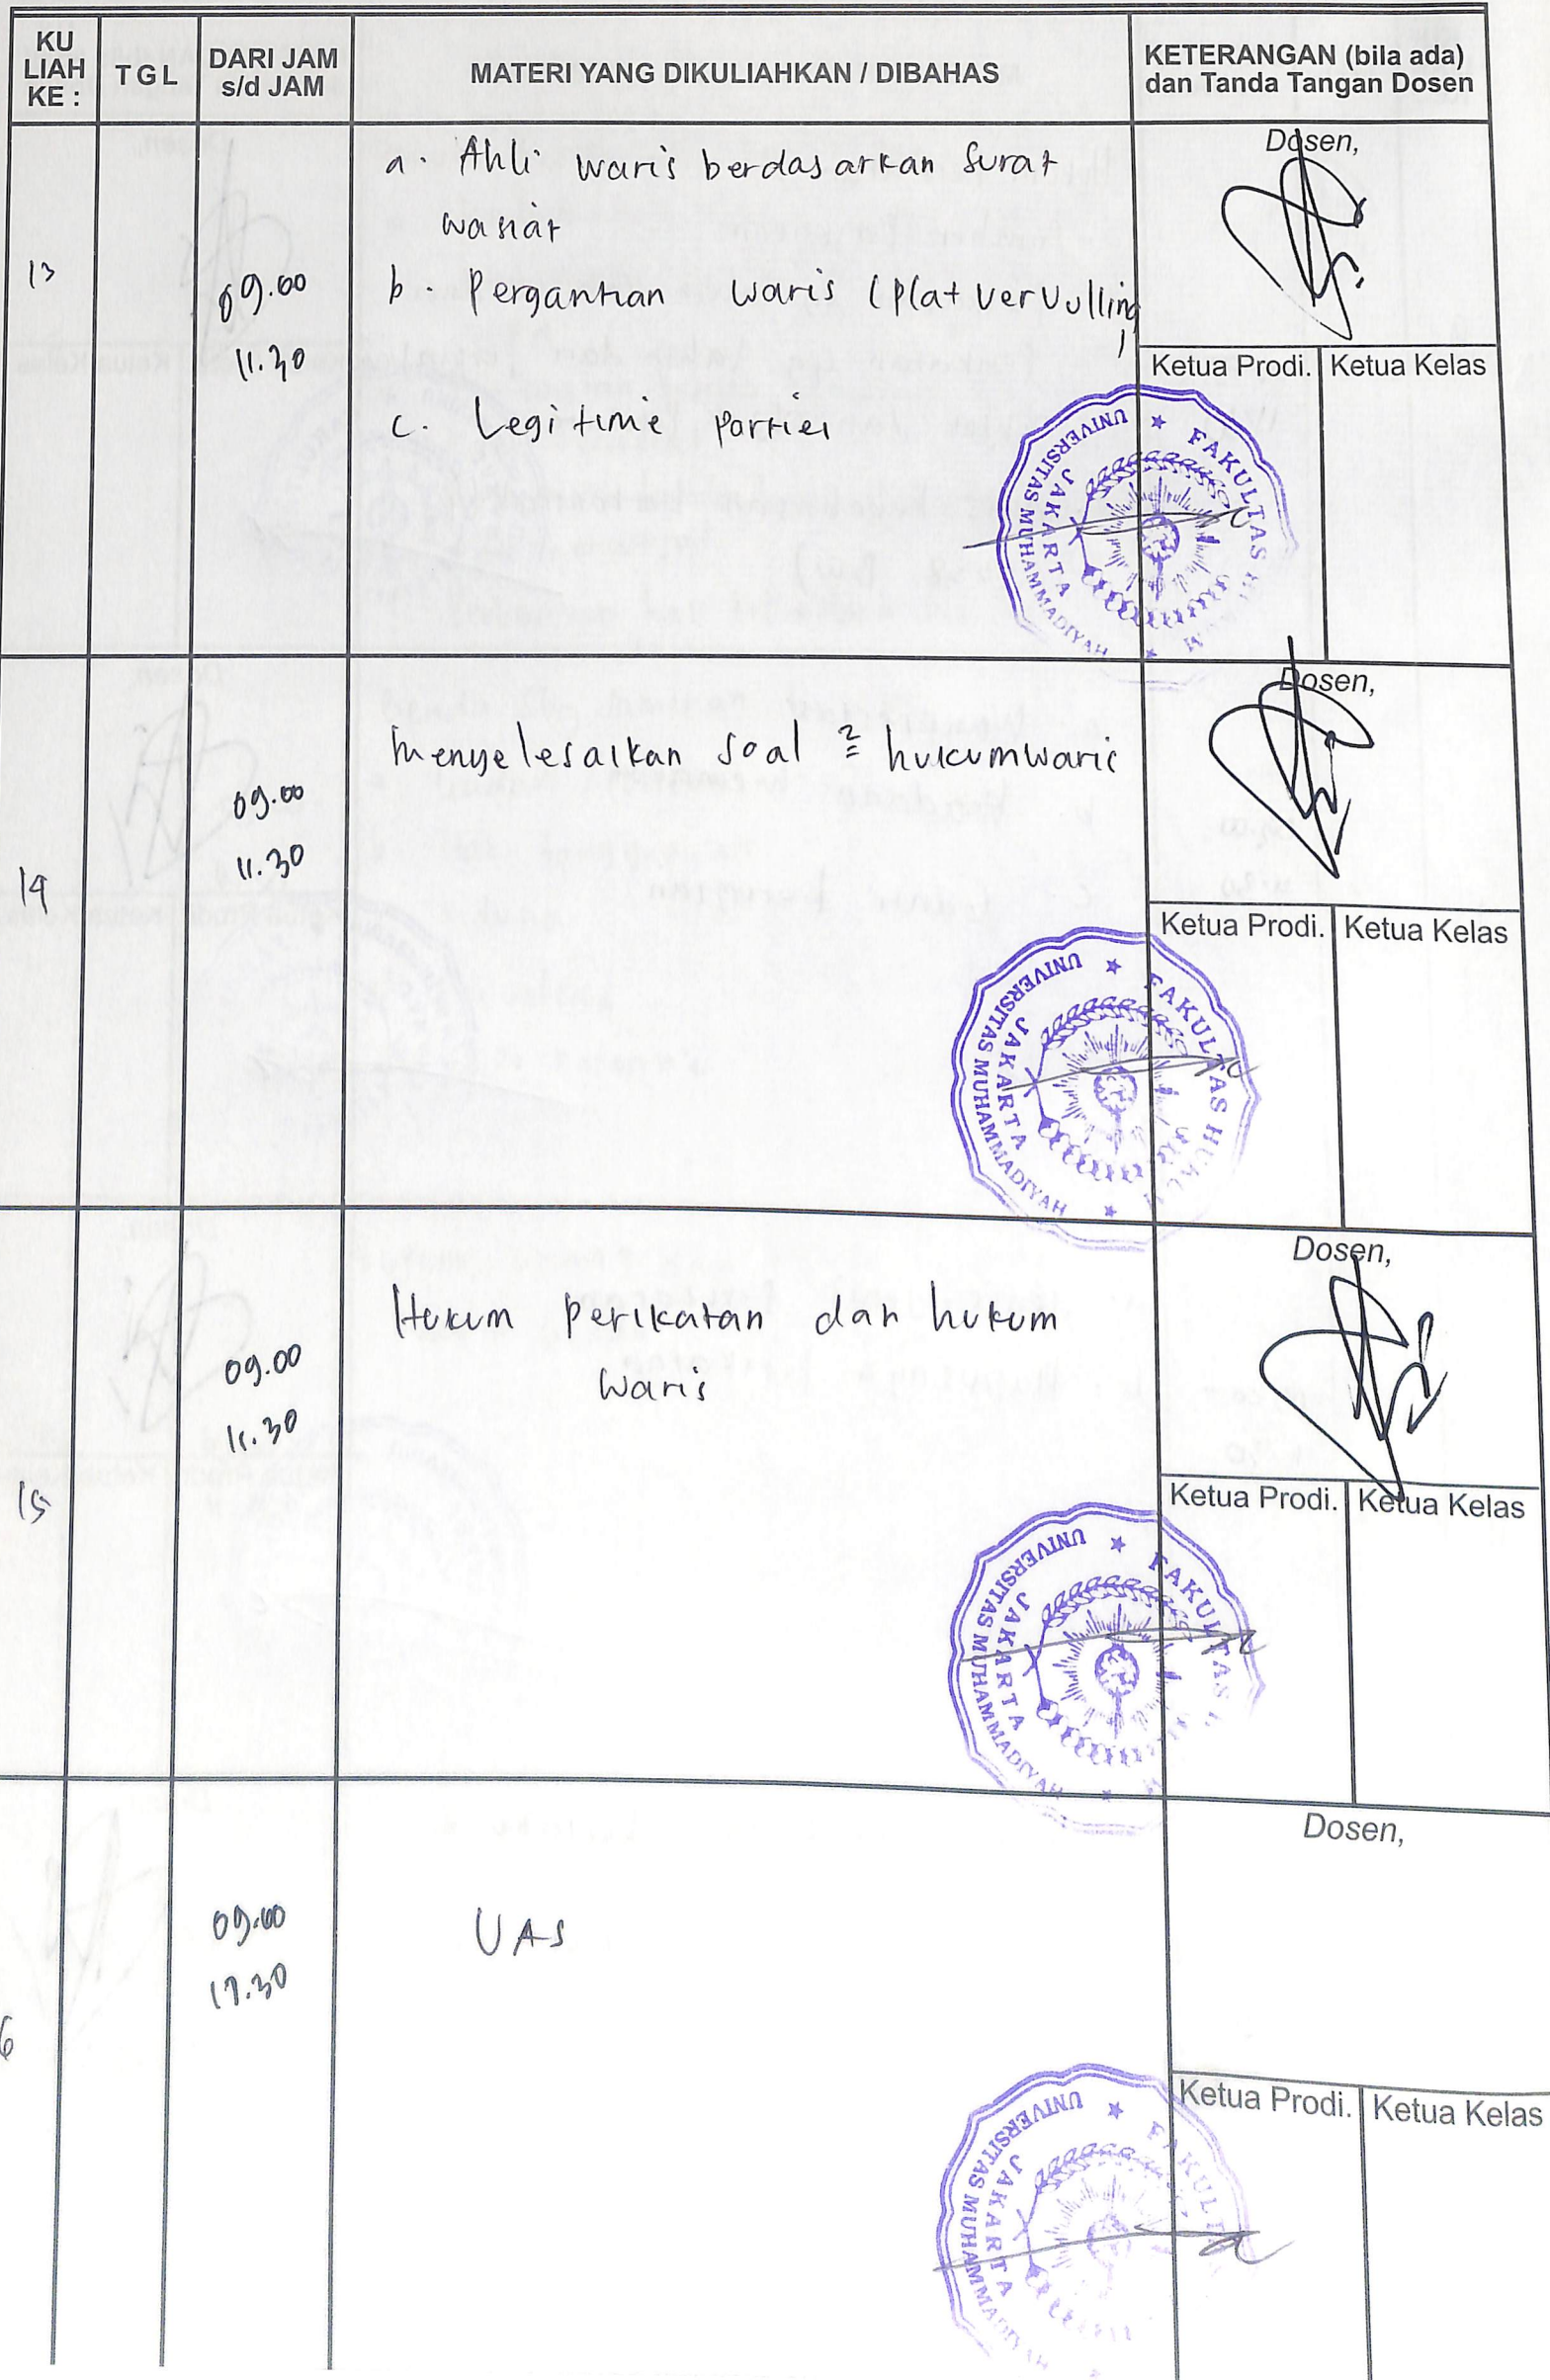 KU LIAH KE :
TGL
DARI JAM s/d JAM
MATERI YANG DIKULIAHKAN / DIBAHAS
KETERANGAN (bila ada) dan Tanda Tangan Dosen
13
09.00
11.30
a. Ahli waris berdasarkan surat
wasiat
b. Pergantian waris (plat vervulling
)
c. Legitimie Partiei
Dosen,
Ketua Prodi.
Ketua Kelas
UNIVERSITAS MUHAMMADIYAH
JAKARTA
FAKULTAS
14
09.00
11.30
Menyelesaikan soal ² hukumwaris
Dosen,
Ketua Prodi.
Ketua Kelas
UNIVERSITAS MUHAMMADIYAH
JAKARTA
FAKULTAS HUKUM
15
09.00
11.30
Hukum perikatan dan hukum
waris
Dosen,
Ketua Prodi.
Ketua Kelas
UNIVERSITAS MUHAMMADIYAH
JAKARTA
FAKULTAS
6
09.00
11.30
UAS
Dosen,
Ketua Prodi.
Ketua Kelas
UNIVERSITAS MUHAMMADIYAH
JAKARTA
FAKULTA